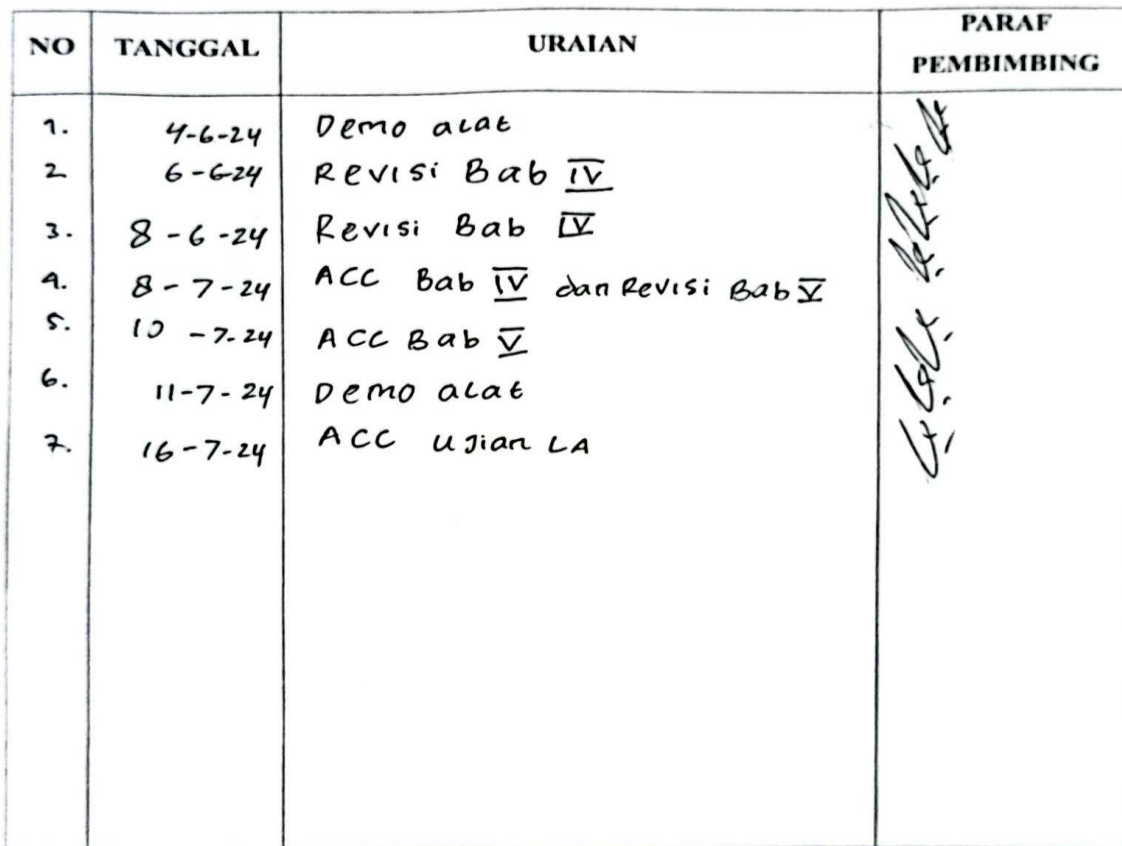 NO TANGGAL URAIAN PARAF PEMBIMBING
1. 4-6-24 Demo alat
2 6-6-24 Revisi Bab IV
3. 8-6-24 Revisi Bab IV
4. 8-7-24 ACC Bab IV dan Revisi Bab V
5. 10-7-24 ACC Bab V
6. 11-7-24 Demo alat
7. 16-7-24 ACC Ujian LA